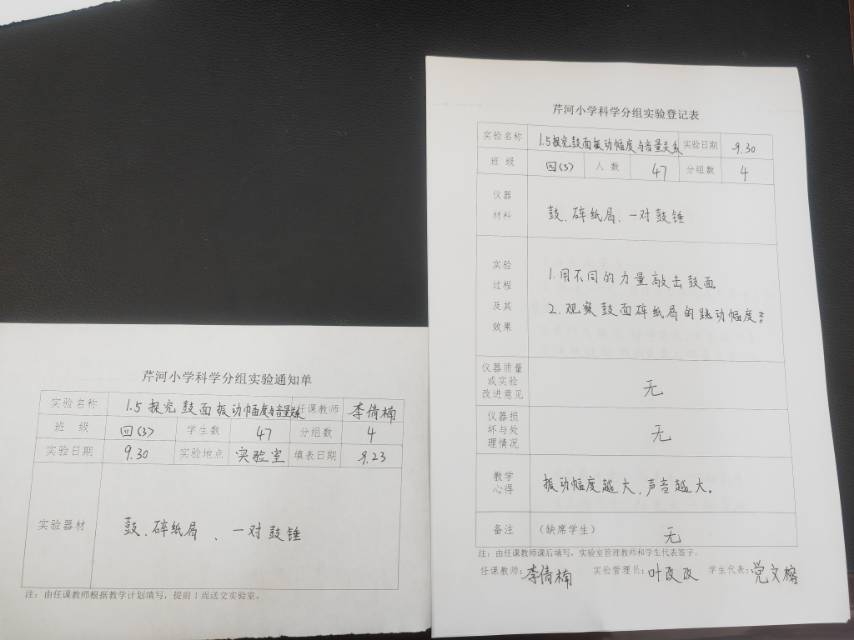 芹河小学科学分组实验通知单
实验名称 1.5探究鼓面振动幅度与音量关系 任课教师 李倩楠
班 级 四(3) 学生数 47 分组数 4
实验日期 9.30 实验地点 实验室 填表日期 9.23
实验器材 鼓、碎纸屑、一对鼓锤
注:由任课教师根据教学计划填写,提前1周送交实验室。
芹河小学科学分组实验登记表
实验名称 1.5探究鼓面振动幅度与音量关系 实验日期 9.30
班 级 四(3) 人 数 47 分组数 4
仪器
材料
鼓、碎纸屑、一对鼓锤
实验
过程
及其
效果
1.用不同的力量敲击鼓面
2.观察鼓面碎纸屑的跳动幅度
仪器质量
或实验
改进意见
无
仪器损
坏与处
理情况
无
教学
心得
振动幅度越大,声音越大。
备注 (缺席学生) 无
注:由任课教师课后填写,实验室管理教师和学生代表签字。
任课教师:李倩楠 实验管理员:叶改改 学生代表:党文榕